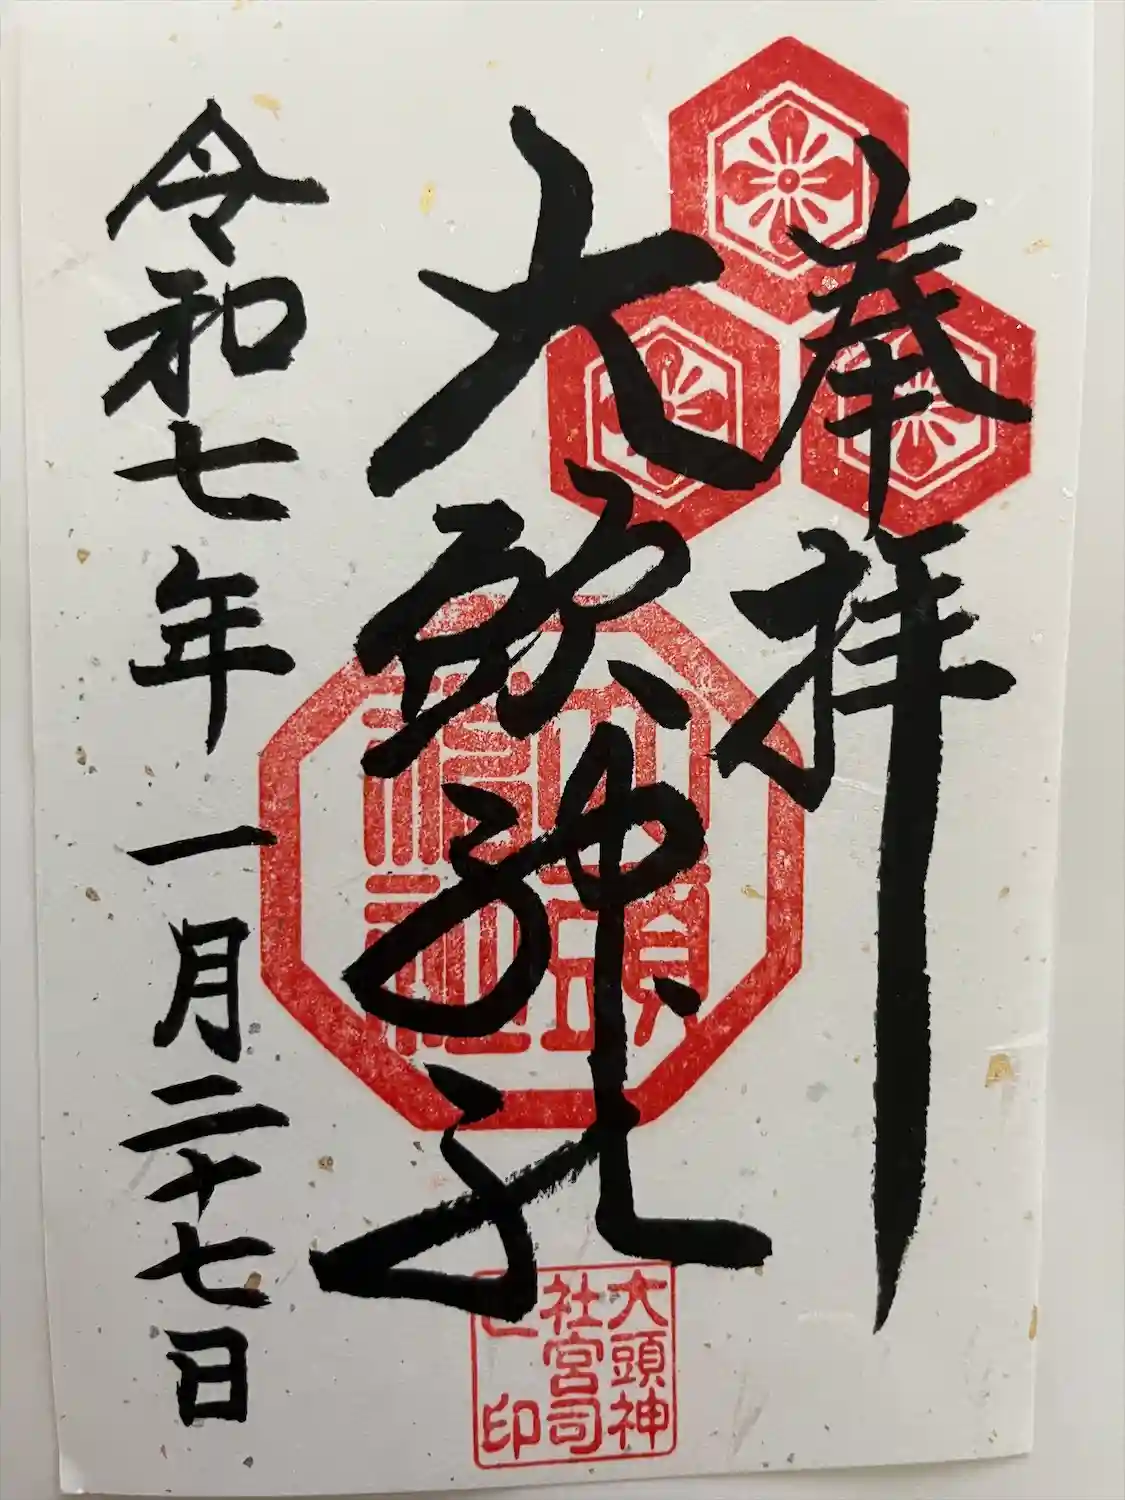 奉拝
大頭神社
令和七年一月二十七日
大頭
神社
大頭神
社宮司
印